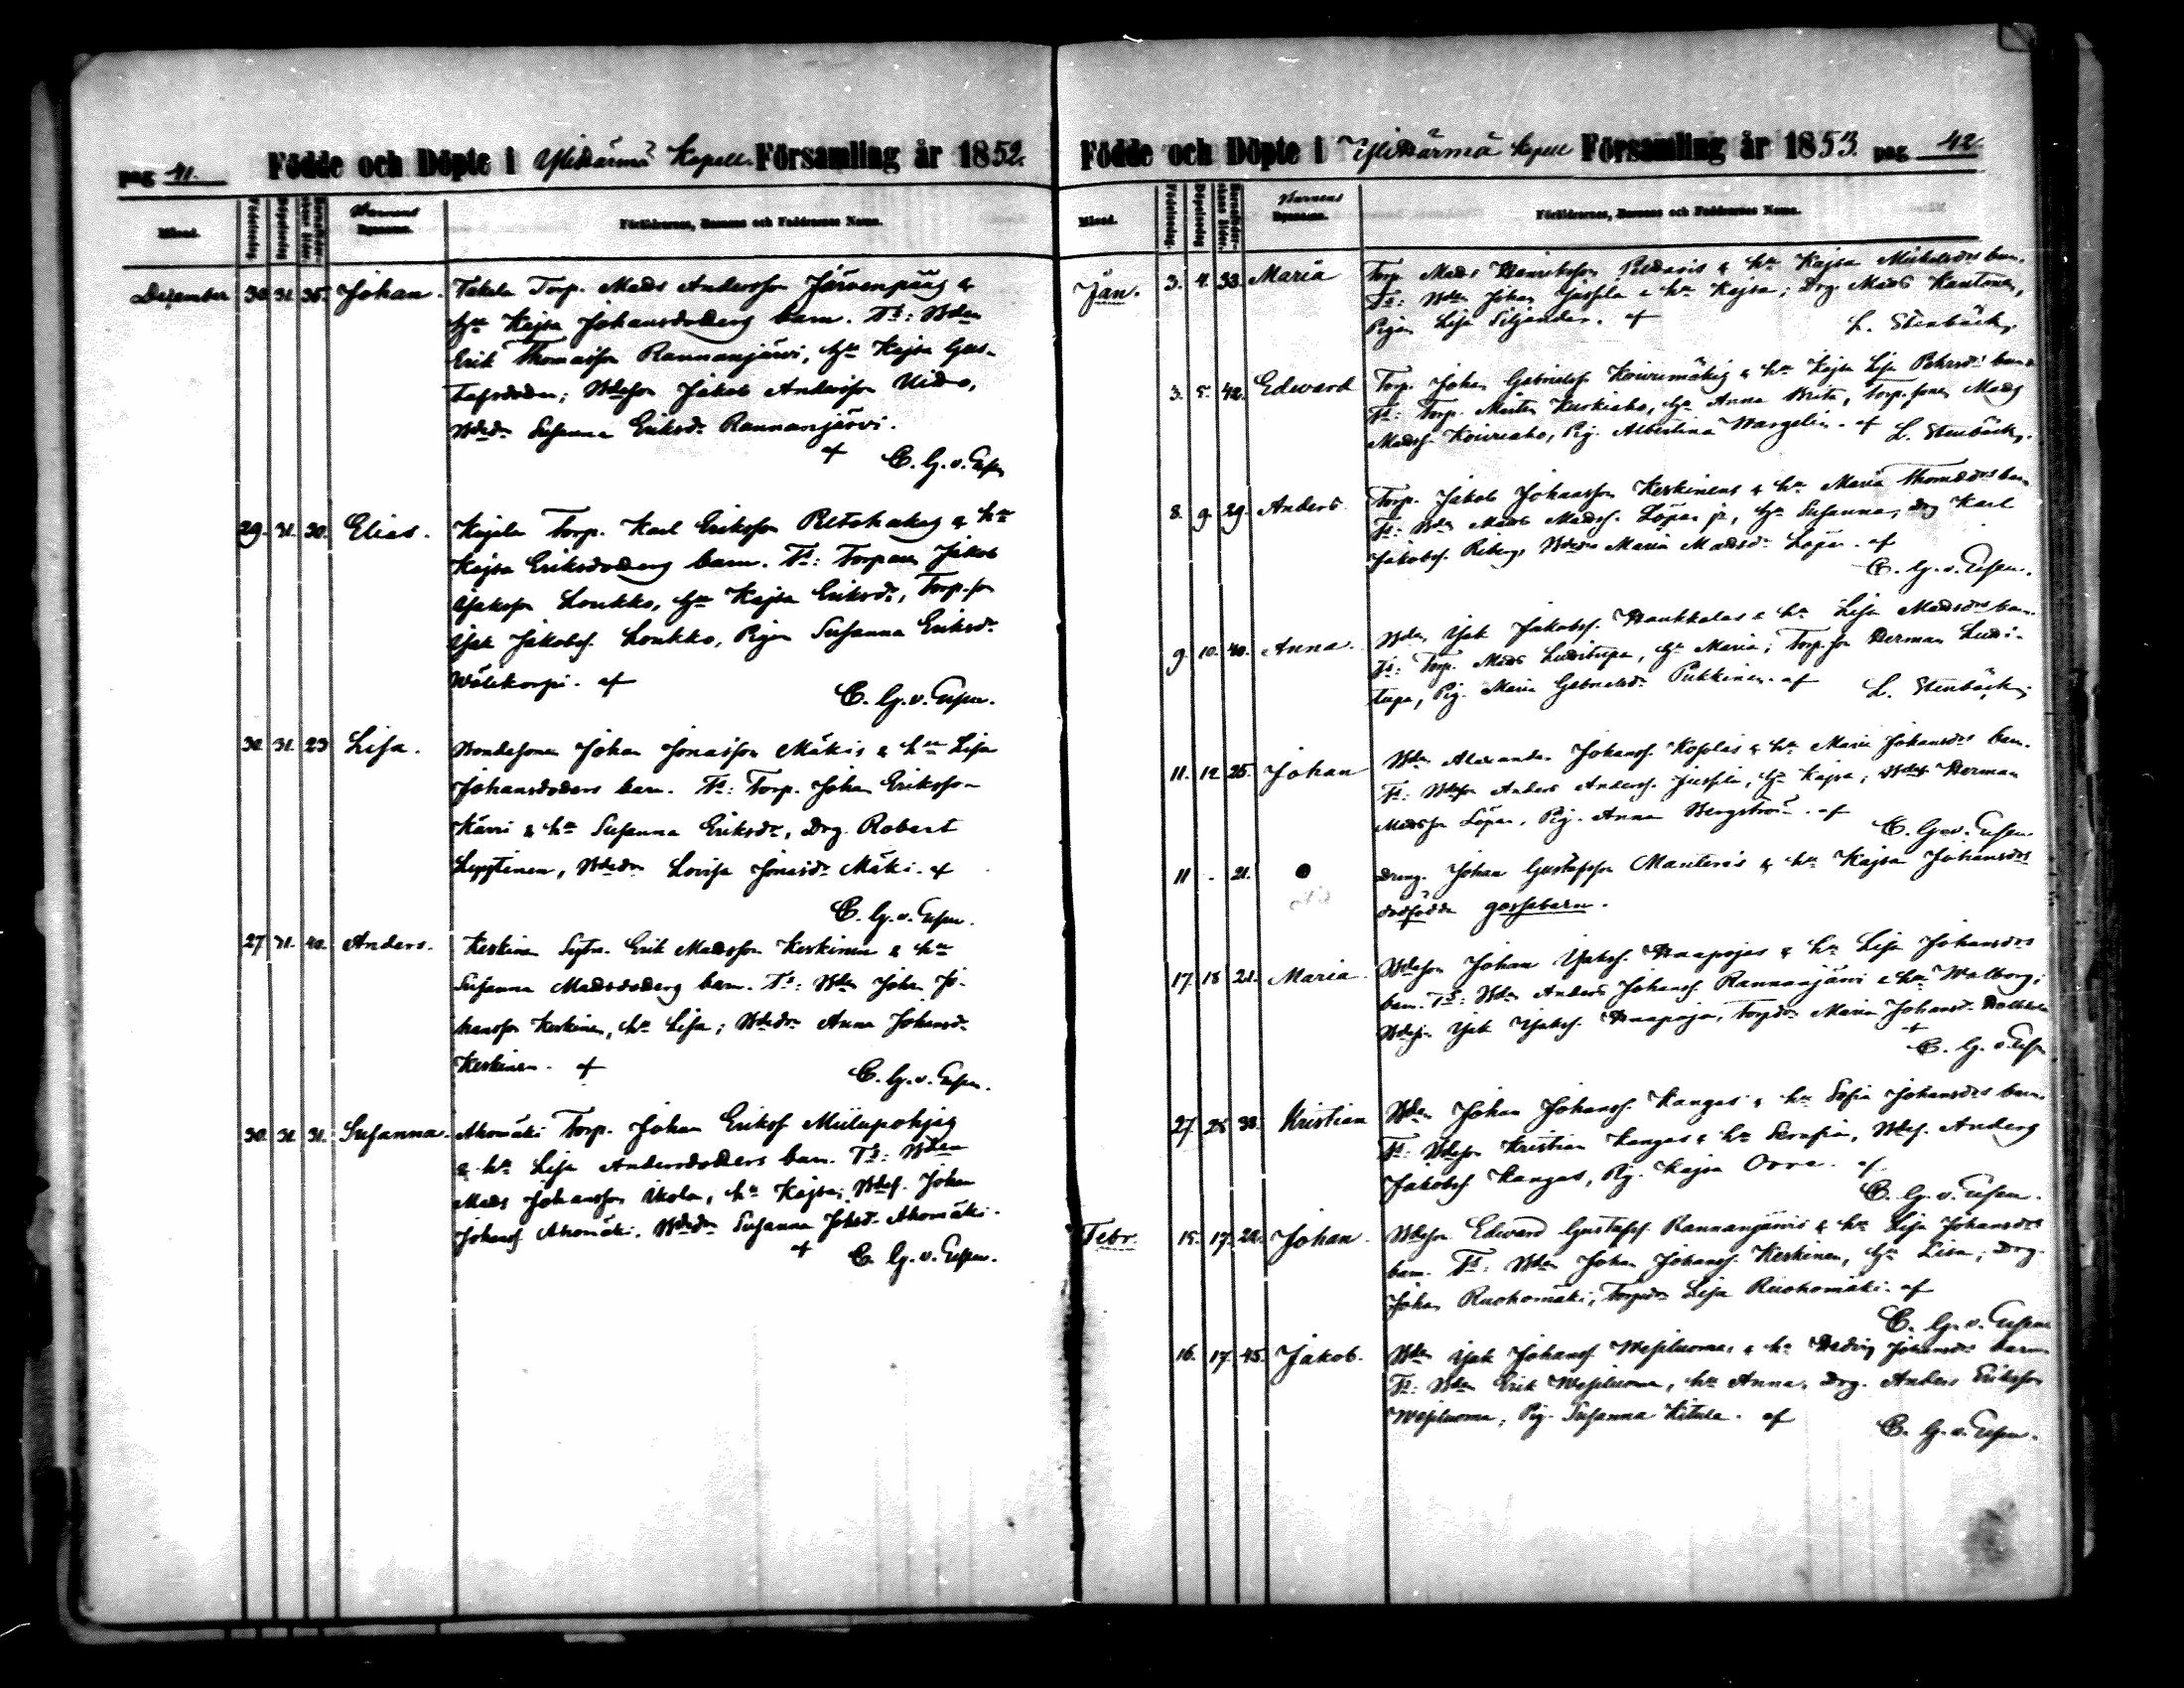 pag 41. Födde och Döpte i Ylikärmä Kapell Församling år 1852.
Månad. Födelsedag Döpelsedag Barnens Föräldrarnes, Barnens och Faddrarnes Namn.
December 30. 31. 35. Johan. Torp. Mads Andersson Järvenpääs &
Kajsa Johansdoters barn. Fs: Bden
Erik Thomasson Rannanjärvi, Kajsa Gus-
tafsdoter; Bdeson Jakob Andersson
Susanna Eriksdr Rannanjärvi.
af C. G. v. Essen
29. 31. 30. Elias. Torp. Karl Eriksson & hu
Kajsa Eriksdoters barn. Fs: Torparen Jakob
Isaksson Loukko, Kajsa Eriksdr, Torp.son
Isak Jakobss. Loukko, Pigan Susanna Eriksdr
Wälikorpi. af
C. G. v. Essen.
30. 31. 23 Lisa. Bondesonen Johan Jonasson Mäkis & hu Lisa
Johansdoters barn. Fs: Torp. Johan Eriksson
& hu Susanna Eriksdr, Drg. Robert
Lovisa Jonasdr Mäki. af
C. G. v. Essen.
27. 31. 40. Anders. Keskinen Erik Madsson Keskinen & hu
Susanna Madsdoters barn. Fs: Bden Johan Jo-
hansson Keskinen, hu Lisa; Anna Johansdr
Keskinen. af
C. G. v. Essen.
30. 31. 31. Susanna. Ahomäki Torp. Johan Erikss Miilupohjas
& hu Lisa Andersdoters barn. Fs: Bden
Mads Johansson Ikola, hu Kajsa; Johan
Johanss Ahomäki. Susanna Johsdr Ahomäki.
af C. G. v. Essen.
Födde och Döpte i Ylikärmä kapell Församling år 1853. pag 42.
Månad. Födelsedag Döpelsedag Barnens Föräldrarnes, Barnens och Faddrarnes Namn.
Jan. 3. 4. 33. Maria Torp. Mads Henriksson & hu Kajsa Mickelsdrs barn.
Fs: Bden Johan & hu Kajsa; Drg. Mads Kantonen,
Pigan Lisa Siljander. af L. Stenbäck.
3. 5. 42. Edward Torp. Johan Gabrielss Koivumäkis & hu Kajsa Lisa Pehrsdrs barn
Fs: Torp. Keskiaho, Anna Brita, Torp.sonen Mads
Madss. Koivuaho, Pig. Albertina Wargelin. af L. Stenbäck.
8. 9. 29. Anders. Torp. Jakob Johansson Keskinens & hu Maria Thomsdrs barn
Fs: Bden Mads Madss. Löpar jr, Susanna, drg Karl
Jakobss. Maria Madsdr. Löpar. af
C. G. v. Essen.
9. 10. 40. Anna. Bden Isak Jakobss. & hu Lisa Madsdrs barn.
Fs: Torp. Mads Luasitupa, Maria; Torp.son Herman Luasi-
tupa, Pig. Maria Gabrielsdr. Pukkinen. af L. Stenbäck.
11. 12. 25. Johan Bden Alexander Johanss. Kosolas & hu Maria Johansdrs barn.
Fs: Bdeson Anders Anderss. Kajsa; Herman
Madsson Löpar, Pig. Anna Bergström. af
C. G. v. Essen
11 - 21. Dreng. Johan Gustafsson & hu Kajsa Johansdrs
dödfödda gossebarn.
17. 18 21. Maria. Bdeson Johan Isakss. Haapojas & hu Lisa Johansdrs
barn. Fs: Bden Anders Johanss. Rannanjärvi & hu Walborg;
Isak Isakss. Haapoja, Torpdr Maria Johansdr
af C. G. v. Essen
27. 28 38. Kristian Bden Johan Johanss. Kangas & hu Sofia Johansdrs barn.
Fs. Bdeson Kristian Kangas & hu Serafia, Anders
Jakobss Kangas, Pig. Kajsa Orra. af
C. G. v. Essen.
Febr. 15. 17. 22. Johan. Bdeson Edward Gustafss. Rannanjärvis & hu Lisa Johansdrs
barn. Fs. Bden Johan Johanss. Keskinen, Lisa; Drg.
Johan Ruohomäki, Torpdr Lisa Ruohomäki. af
C. G. v. Essen
16. 17. 45. Jakob. Bden Isak Johanss. Wesiluoma & hu Hedvig Johansdrs barn
Fs. Bden Erik Wesiluoma, hu Anna, Drg. Anders Eriksson
Wesiluoma, Pig. Susanna Kitula. af
C. G. v. Essen.